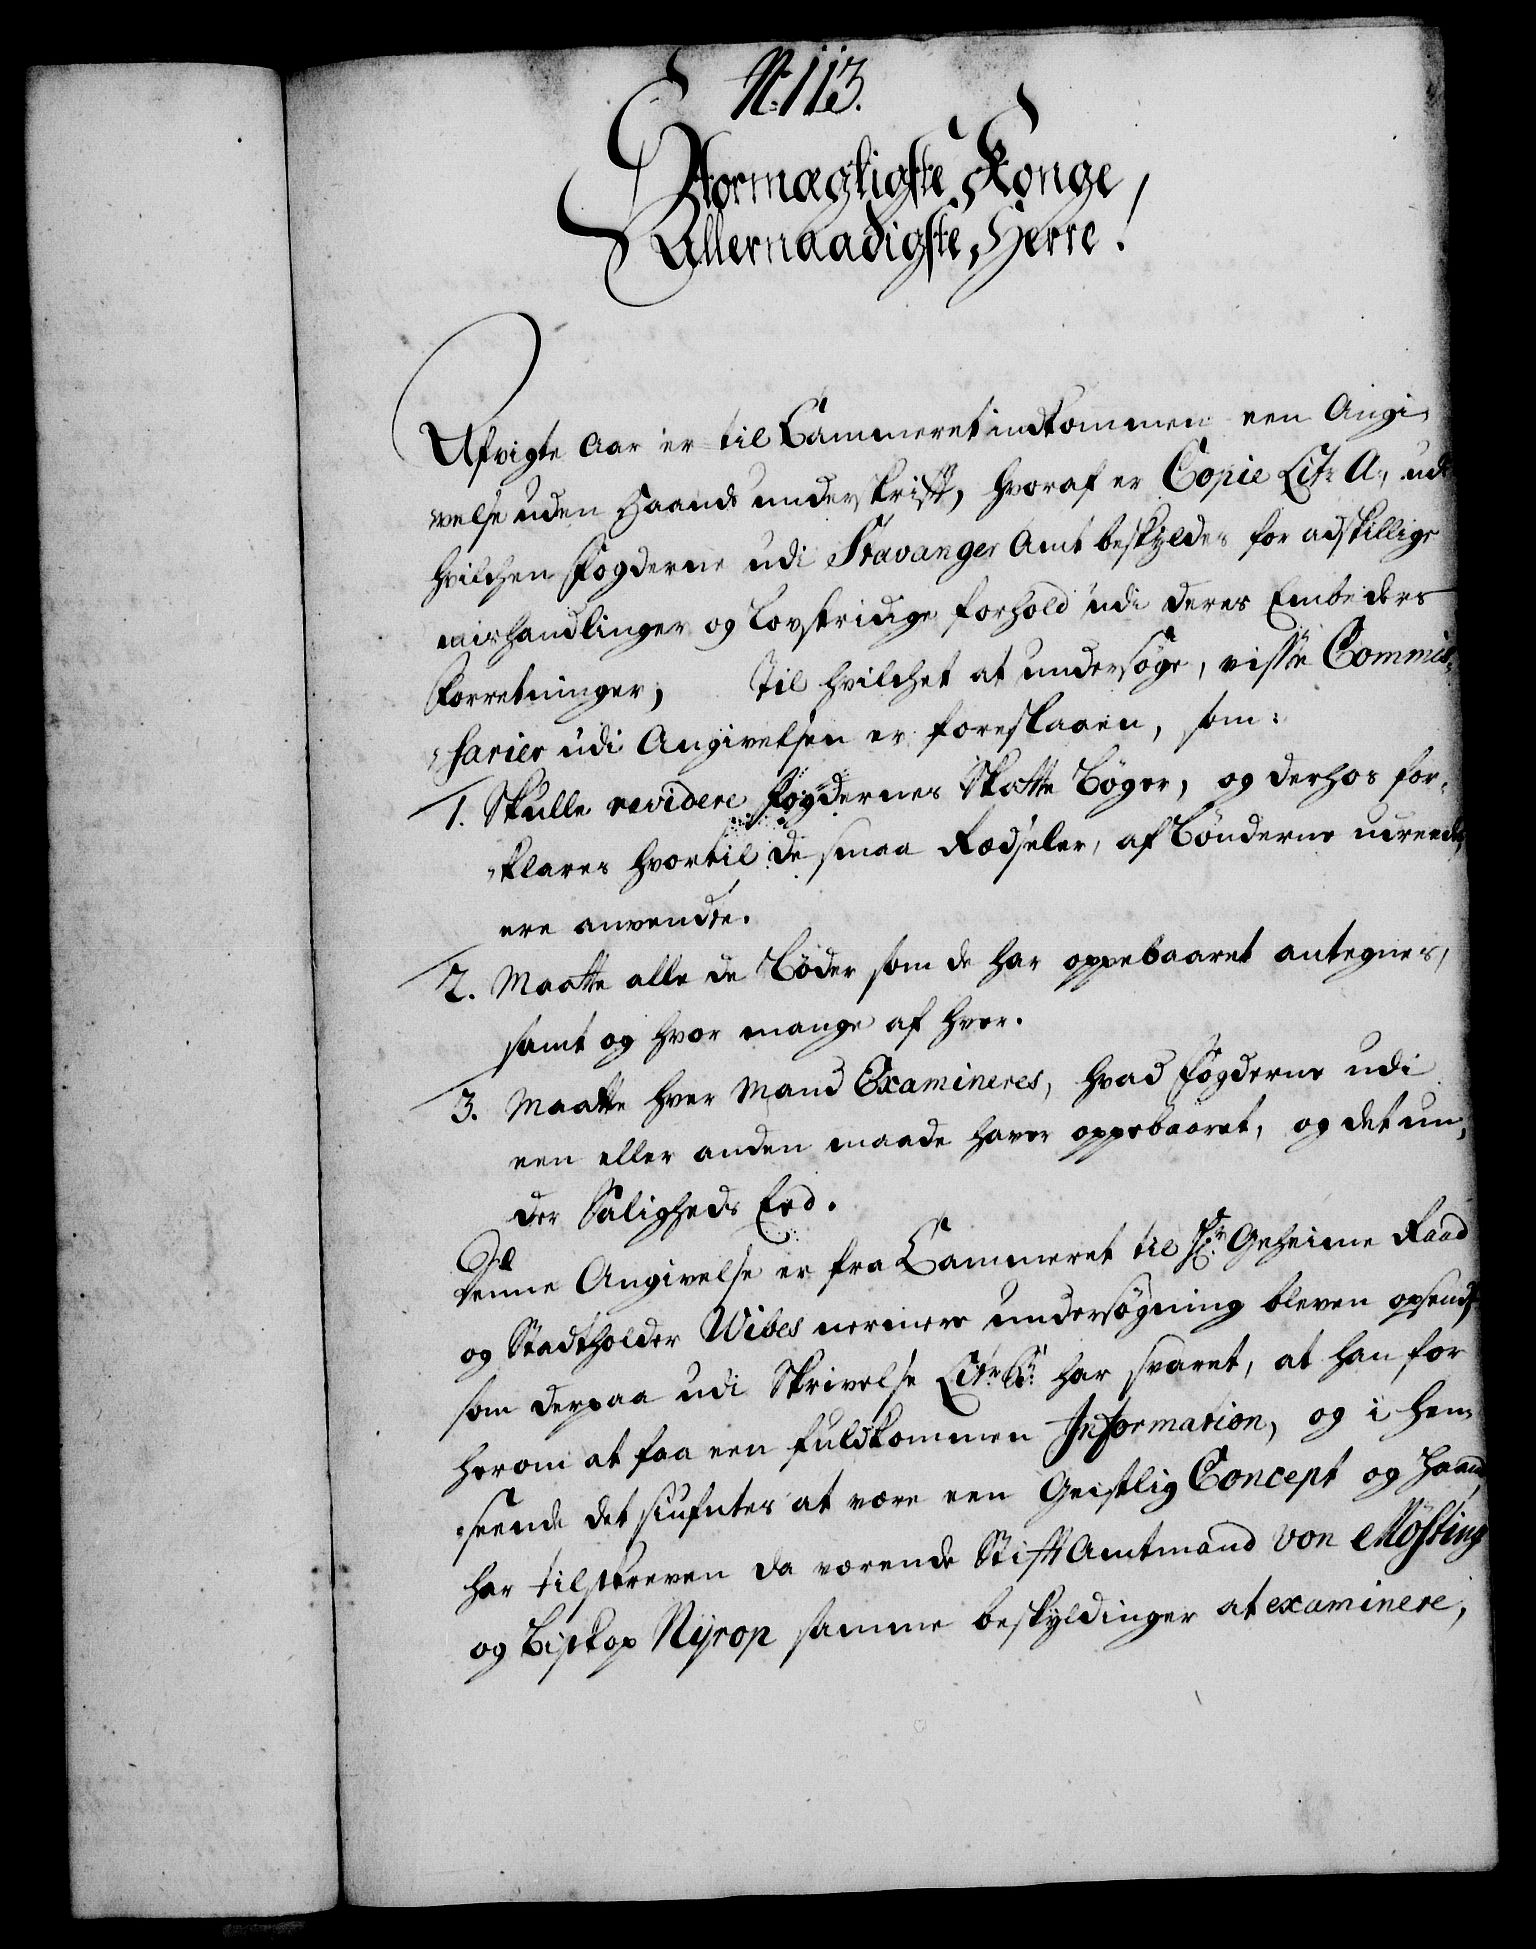 N: 113.
Stormægtigste Konge,
Allernaadigste Herre!
Afvigte Aar er til Cammeret indkommen een Angi-
velse uden Haands underskrifft, hvoraf er Copie Litr. A., udi
hvilchen Fogderne udi Stavanger Amt beskyldes for adskillige
mishandlinger og Lovstridige forhold udi deres Embeders
Forretninger, Til hvilchet at undersøge, visse Commis-
sarier udi Angivelsen er foreslaaen, som:
1. Skulle revidere Fogdernes Skatte Bøger, og derhos for-
klares hvortil de smaa Rodseler, af Bønderne udreedt,
ere anvendte.
2. Maatte alle de Bøder som de har oppebaaret antegnes,
samt og hvor mange af hver.
3. Maatte hver Mand Examineres, hvad Fogderne udi
een eller anden maade haver oppebaaret, og det un-
der Saligheds Eed.
Denne Angivelse er fra Cammeret til Hr. Geheime Raad
og Stadtholder Wibes nermere undersøgning bleven opsendt,
som derpaa udi Skrivelse Litr. B: har svaret, at han for
herom at faa een fuldkommen Information, og i hen-
seende det siufntes at være een Geistlig Concept og Haand,
har tilskreven da værende Stifft Amtmand von Møsting
og Biskop Nyrop samme beskyldinger at examinere,